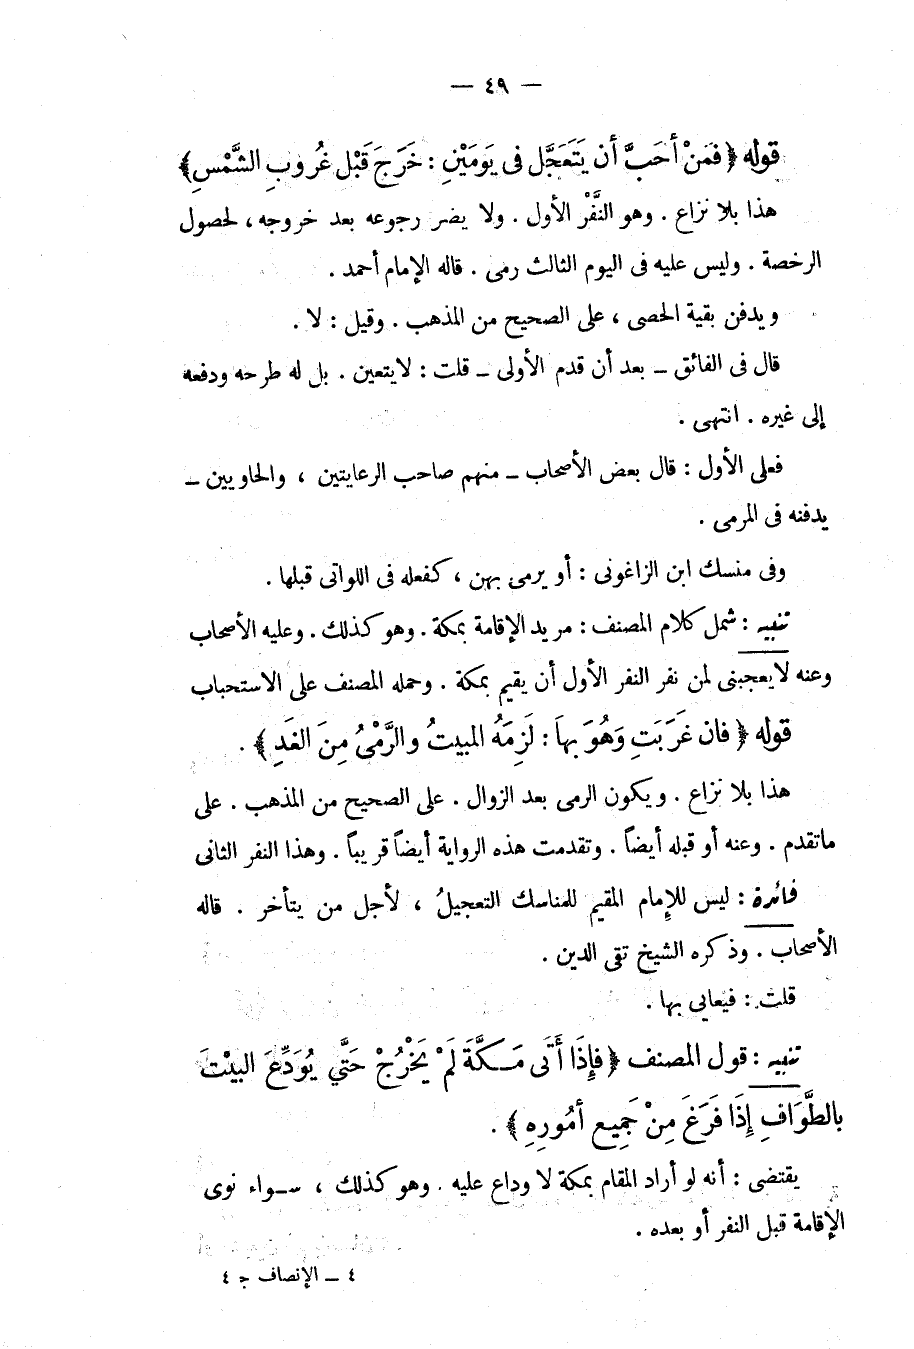 — ٤٩ —
قوله ﴿ فَمَنْ أَحَبَّ أن يَتَعَجَّل فى يَومَيْنِ : خَرَجَ قَبْل غُروبِ الشَّمْسِ﴾
هذا بلا نزاع . وهو النَّفْر الأول . ولا يضر رجوعه بعد خروجه ، لحصول
الرخصة . وليس عليه فى اليوم الثالث رمى . قاله الإمام أحمد .
ويدفن بقية الحصى ، على الصحيح من المذهب . وقيل : لا .
قال فى الفائق ــ بعد أن قدم الأولى ــ قلت : لايتعين . بل له طرحه ودفعه
إلى غيره . انتهى .
فعلى الأول : قال بعض الأصحاب ــ منهم صاحب الرعايتين ، والحاويين ــ
يدفنه فى المرمى .
وفى منسك ابن الزاغونى : أو يرمى بهن ، كفعله فى اللواتى قبلها .
تنبيه : شمل كلام المصنف : مريد الإقامة بمكة . وهو كذلك . وعليه الأصحاب
وعنه لايعجبنى لمن نفر النفر الأول أن يقيم بمكة . وحمله المصنف على الاستحباب
قوله ﴿ فان غَرَبَتِ وَهُوَ بهاَ : لَزِمَهُ المبيتُ والرَّمْىُ مِنَ الغَدِ ﴾ .
هذا بلا نزاع . ويكون الرمى بعد الزوال . على الصحيح من المذهب . على
ماتقدم . وعنه أو قبله أيضاً . وتقدمت هذه الرواية أيضاً قريباً . وهذا النفر الثانى
فائدة : ليس للإمام المقيم للمناسك التعجيلُ ، لأجل من يتأخر . قاله
الأصحاب . وذكره الشيخ تقى الدين .
قلت : فيعايى بها .
تنبيه : قول المصنف ﴿ فإِذَا أَتَى مَـكَّةَ لَمْ يَخْرُجْ حَتَّي يُوَدِّعَ البيْتَ
بالطَّوَافِ إِذَا فَرَغَ مِنْ جَمِيعِ أمُورِهِ ﴾ .
يقتضى : أنه لو أراد المقام بمكة لا وداع عليه . وهو كذلك ، سـواء نوى
الإقامة قبل النفر أو بعده .
٤ ــ الإنصاف ج ٤